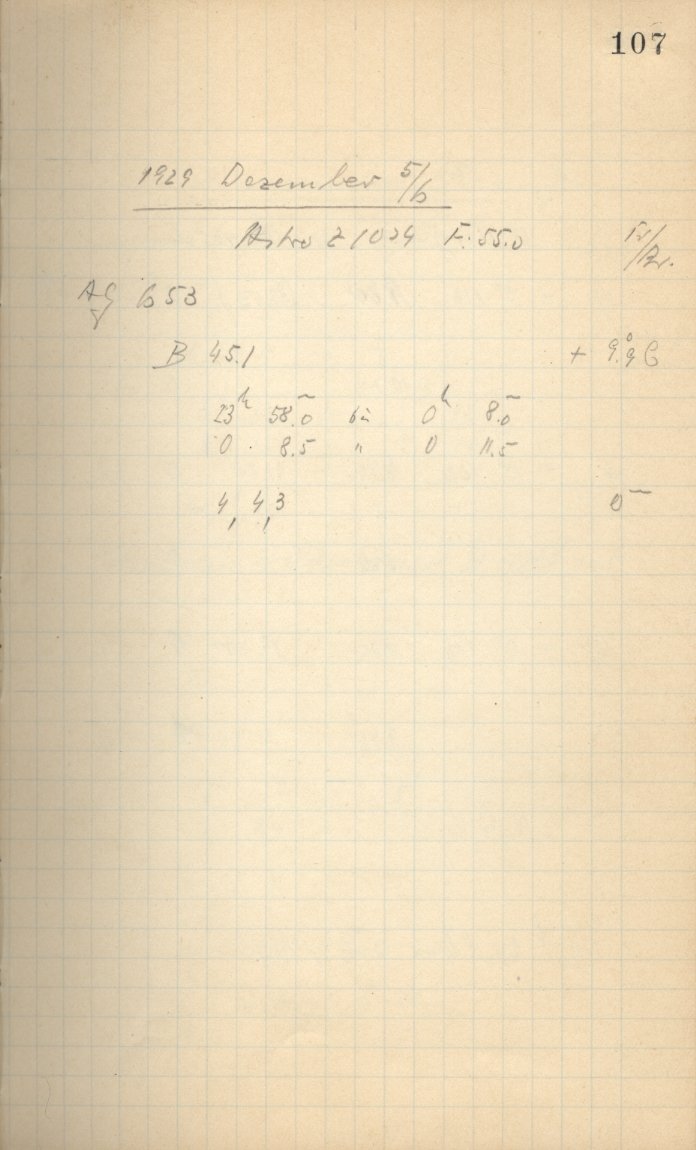 107
1929 Dezember 5/6
Astro Z 1034 F: 55.0
AG 653
B 45.1 + 9.°9 C
23h 58.m0 bis 0h 8.m0
0 8.5 " 0 11.5
4, 4, 3 0m